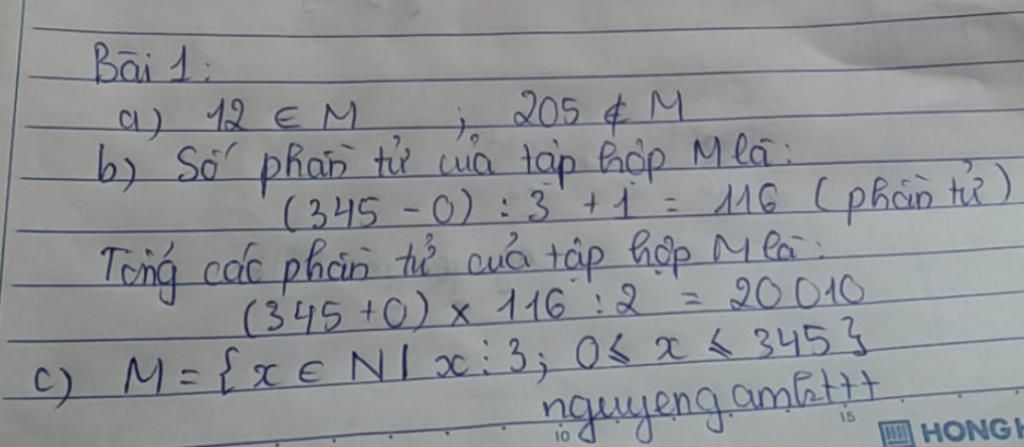 Bài 1:
a) 12 ∈ M ; 205 ∉ M
b) Số phần tử của tập hợp M là:
(345 - 0) : 3 + 1 = 116 (phần tử)
Tổng các phần tử của tập hợp M là:
(345 + 0) × 116 : 2 = 20 010
c) M = {x ∈ N | x ⋮ 3; 0 ≤ x ≤ 345}
10 15
HONG H